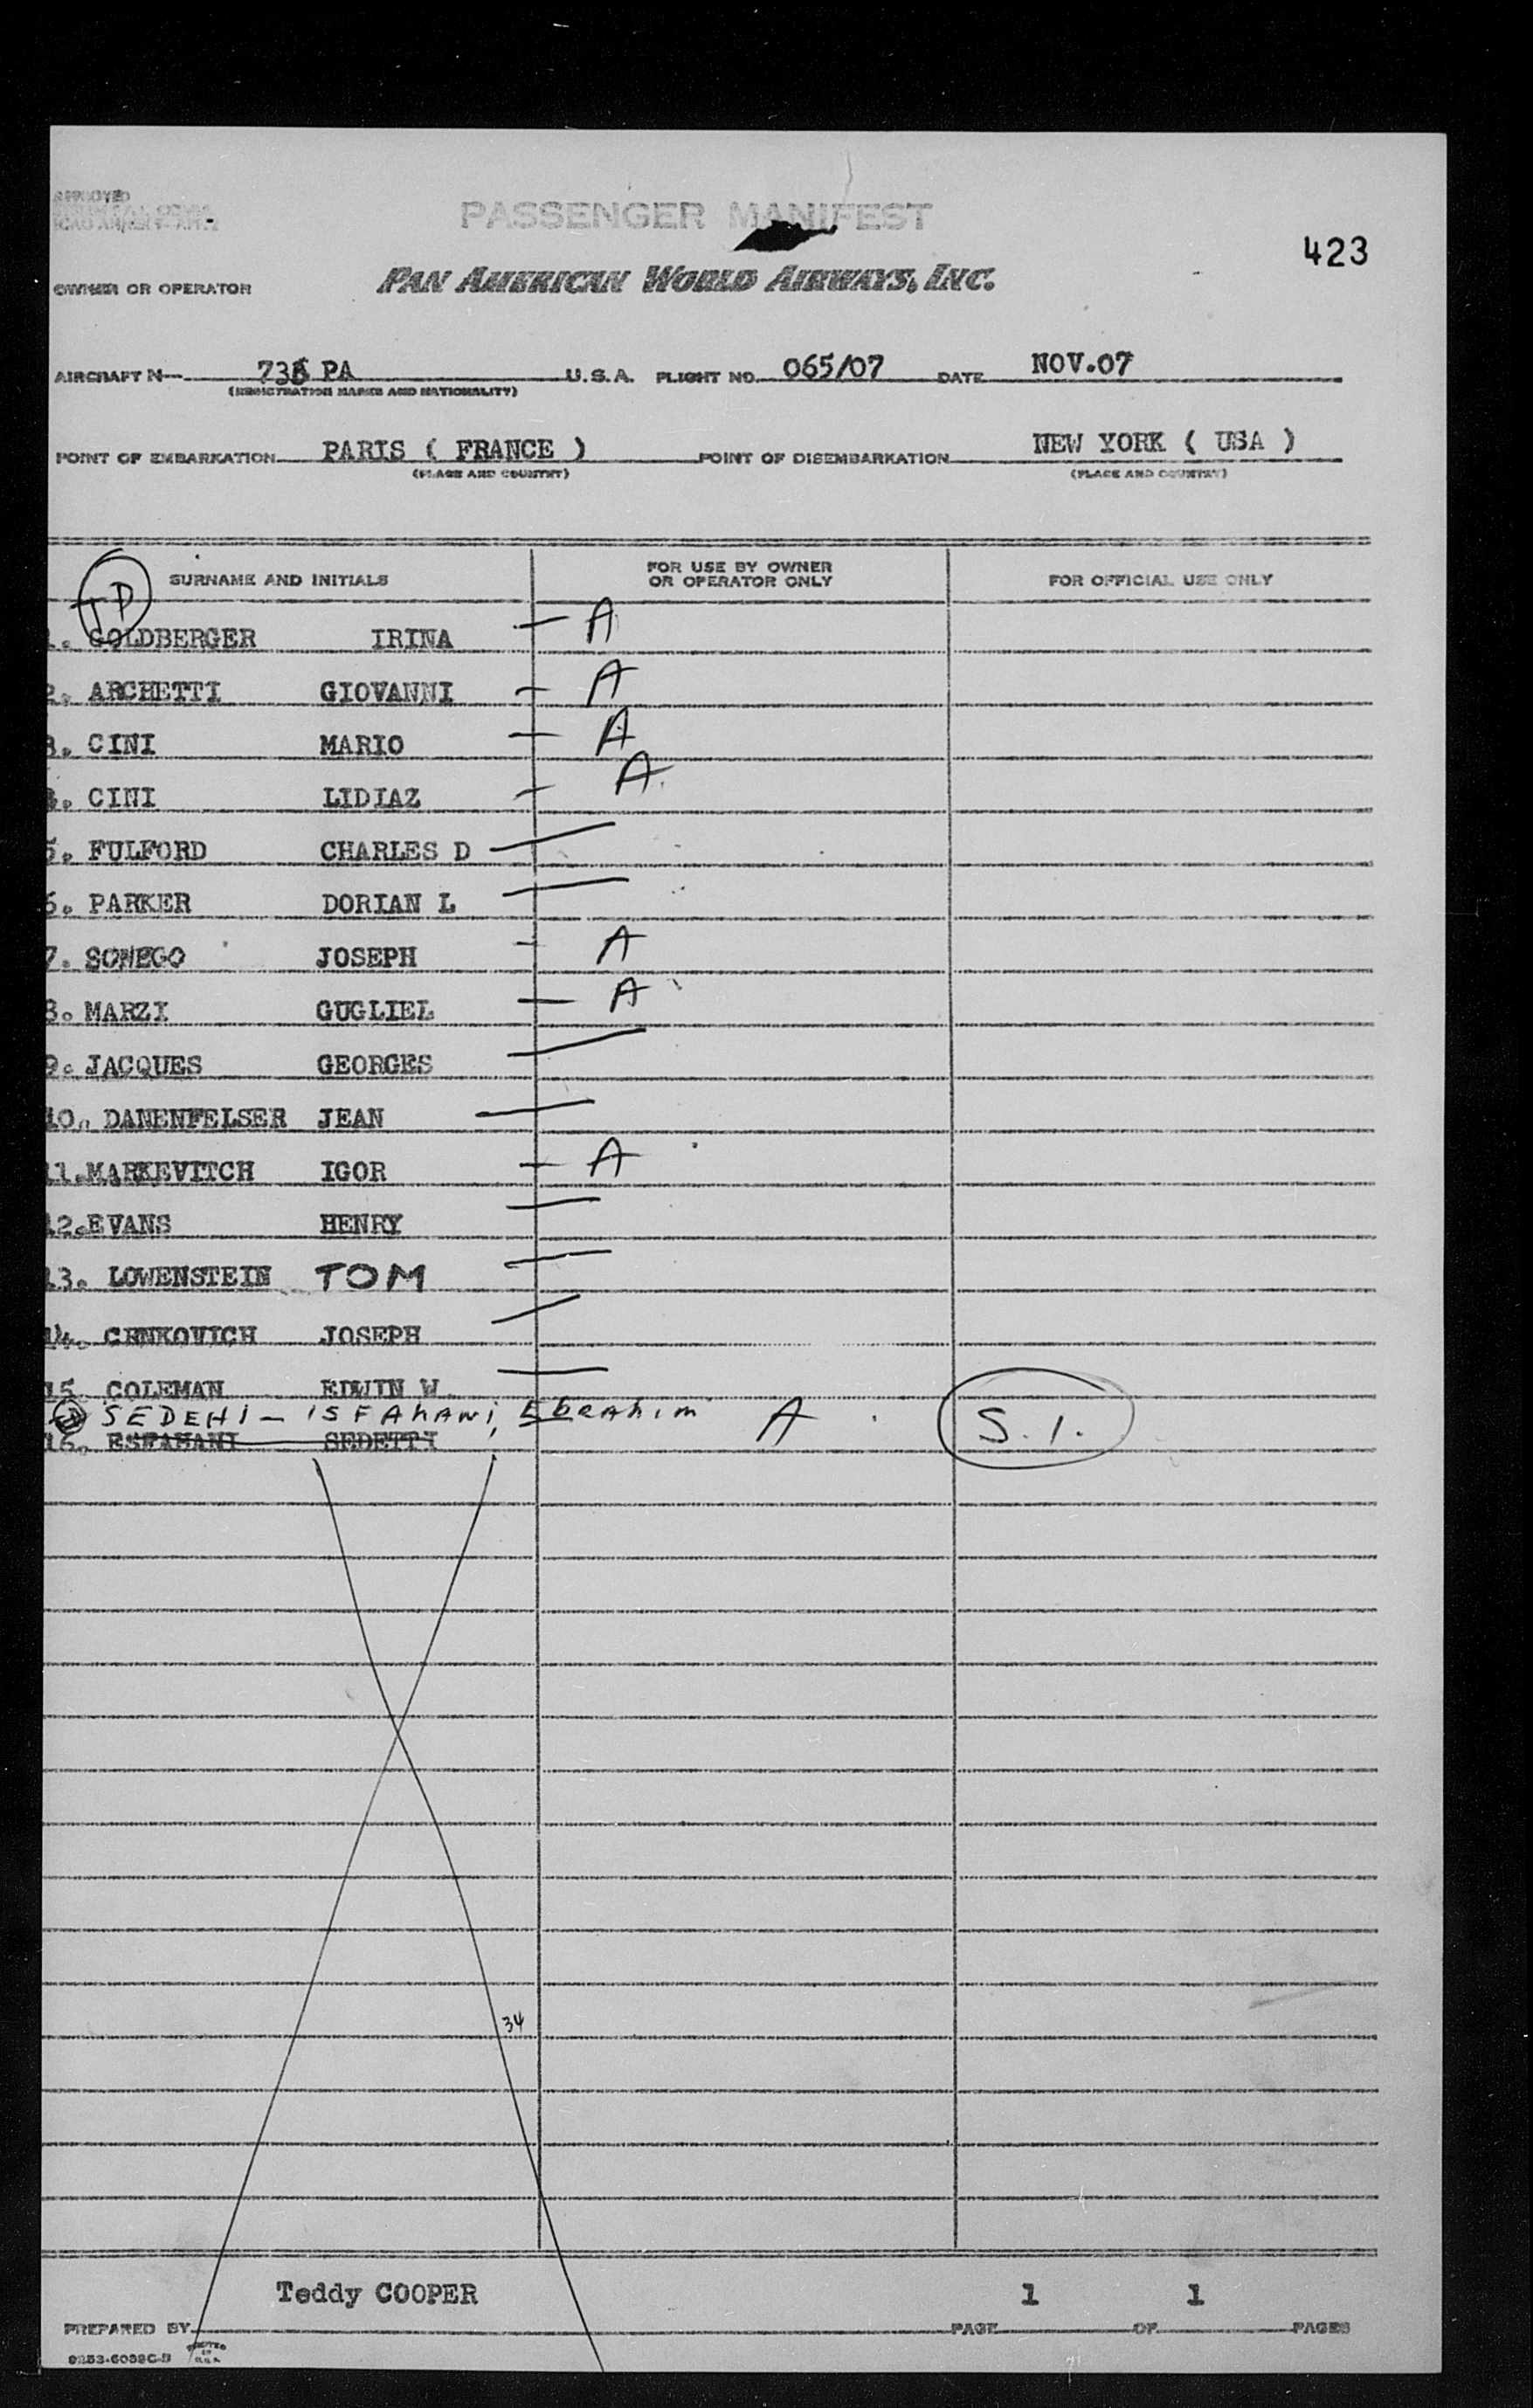 APPROVED
PASSENGER MANIFEST
423
OWNER OR OPERATOR PAN AMERICAN WORLD AIRWAYS, INC.
AIRCRAFT N 73 PA U.S.A. FLIGHT NO. 065/07 DATE NOV.07
(REGISTRATION MARKS AND NATIONALITY)
POINT OF EMBARKATION PARIS ( FRANCE ) POINT OF DISEMBARKATION NEW YORK ( USA )
(PLACE AND COUNTRY) (PLACE AND COUNTRY)
TP SURNAME AND INITIALS FOR USE BY OWNER OR OPERATOR ONLY FOR OFFICIAL USE ONLY
1. GOLDBERGER IRINA — A
2. ARCHETTI GIOVANNI — A
3. CINI MARIO — A
4. CINI LIDIAZ — A.
5. FULFORD CHARLES D —
6. PARKER DORIAN L —
7. SONEGO JOSEPH — A
8. MARZI GUGLIEL — A
9. JACQUES GEORGES —
10. DANENFELSER JEAN —
11. MARKEVITCH IGOR — A
12. EVANS HENRY —
13. LOWENSTEIN TOM —
14. CRNKOVICH JOSEPH —
15. COLEMAN EDWIN W. —
SEDEHI - ISFAHANI, Ebrahim A S.I.
16. ESFAHANI SEDETTI
34
Teddy COOPER 1 1
PREPARED BY PAGE OF PAGES
PRINTED IN U.S.A.